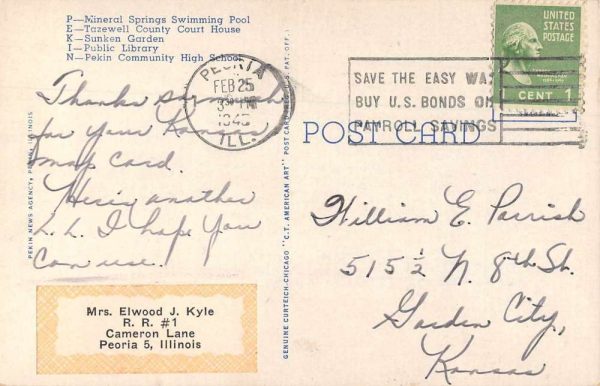 P—Mineral Springs Swimming Pool
E—Tazewell County Court House
K—Sunken Garden
I—Public Library
N—Pekin Community High School
PEORIA
FEB 25
3 30 PM
ILL.
SAVE THE EASY WAY
BUY U.S. BONDS ON
PAYROLL SAVINGS
UNITED
STATES
POSTAGE
1 CENT 1
POST CARD
Thanks so much
for your Kansas
map card.
Here's another
L. L. I hope you
can use!
William E. Parrish
515 1/2 N. 8th St.
Garden City,
Kansas
Mrs. Elwood J. Kyle
R. R. #1
Cameron Lane
Peoria 5, Illinois
PEKIN NEWS AGENCY, PEKIN, ILLINOIS
GENUINE CURTEICH-CHICAGO "C.T. AMERICAN ART" POST CARD (REG. U.S. PAT. OFF.)